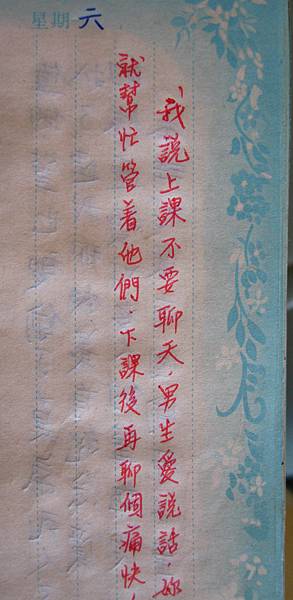 星期六
我說上課不要聊天，男生愛說話，妳
就幫忙管着他們，下課後再聊個痛快！